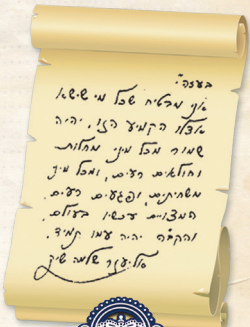 בעזה"י
אני מבטיח שכל מי שישא
אצלו הקמיע הזו, יהיה
שמור מכל מיני מחלות
וחולאים רעים, ומכל מיני
משחיתים, ופגעים רעים,
המצויים עכשיו בעולם,
והקב"ה יהיה עמו תמיד.
אליעזר שלמה שיק